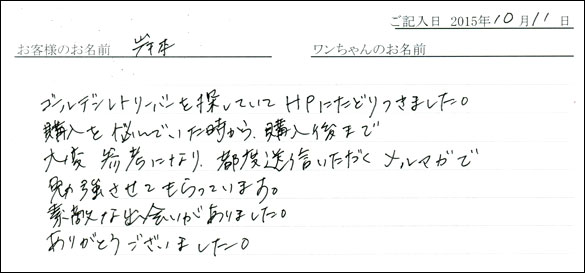 ご記入日 2015年10月11日
お客様のお名前 岩本 ワンちゃんのお名前
ゴールデンレトリーバーを探していて HPにたどりつきました。
購入を悩んでいた時から、購入後まで
大変 参考になり、都度送信いただく メルマガで
勉強させてもらっています。
素敵な出会いがありました。
ありがとうございました。